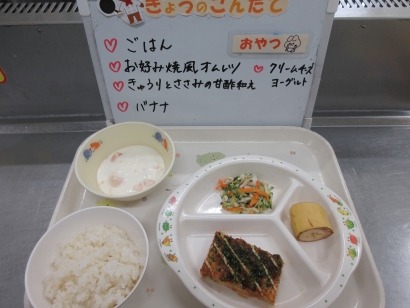 きょうのこんだて
♡ ごはん
おやつ
♡ お好み焼風オムレツ
♡ クリームチーズヨーグルト
♡ きゅうりとささみの甘酢和え
♡ バナナ